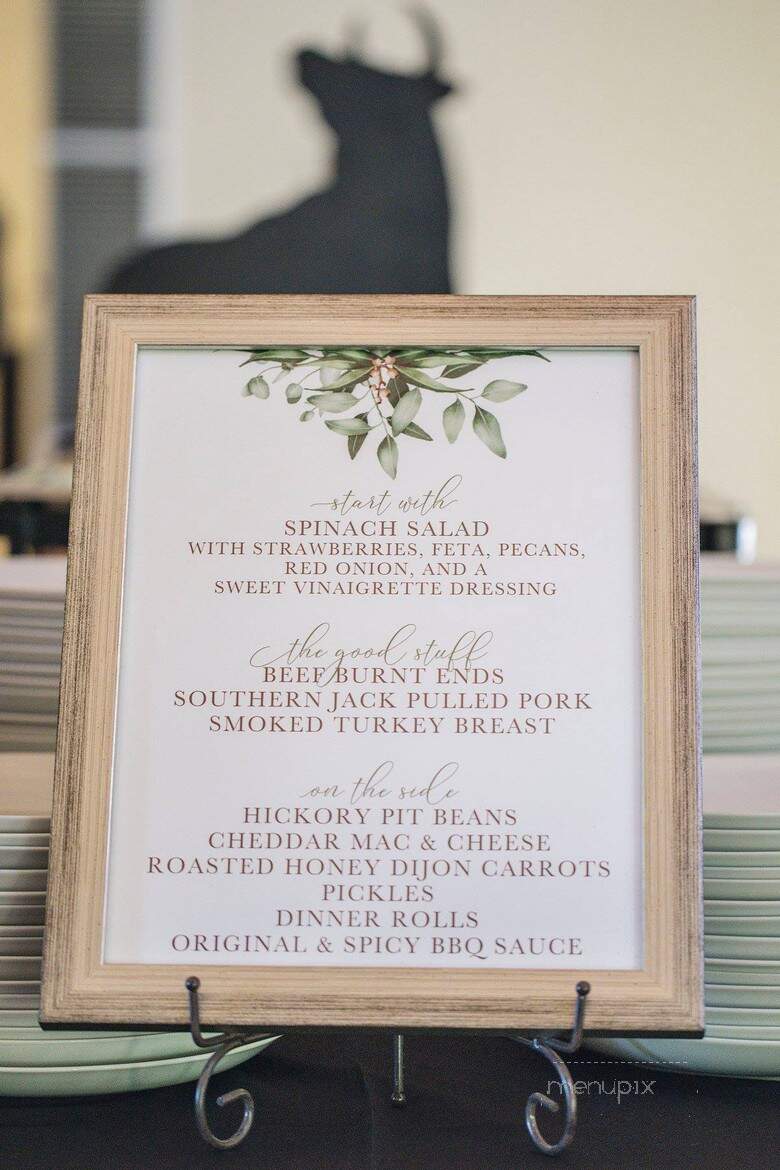 start with
SPINACH SALAD
WITH STRAWBERRIES, FETA, PECANS,
RED ONION, AND A
SWEET VINAIGRETTE DRESSING
the good stuff
BEEF BURNT ENDS
SOUTHERN JACK PULLED PORK
SMOKED TURKEY BREAST
on the side
HICKORY PIT BEANS
CHEDDAR MAC & CHEESE
ROASTED HONEY DIJON CARROTS
PICKLES
DINNER ROLLS
ORIGINAL & SPICY BBQ SAUCE
menupix